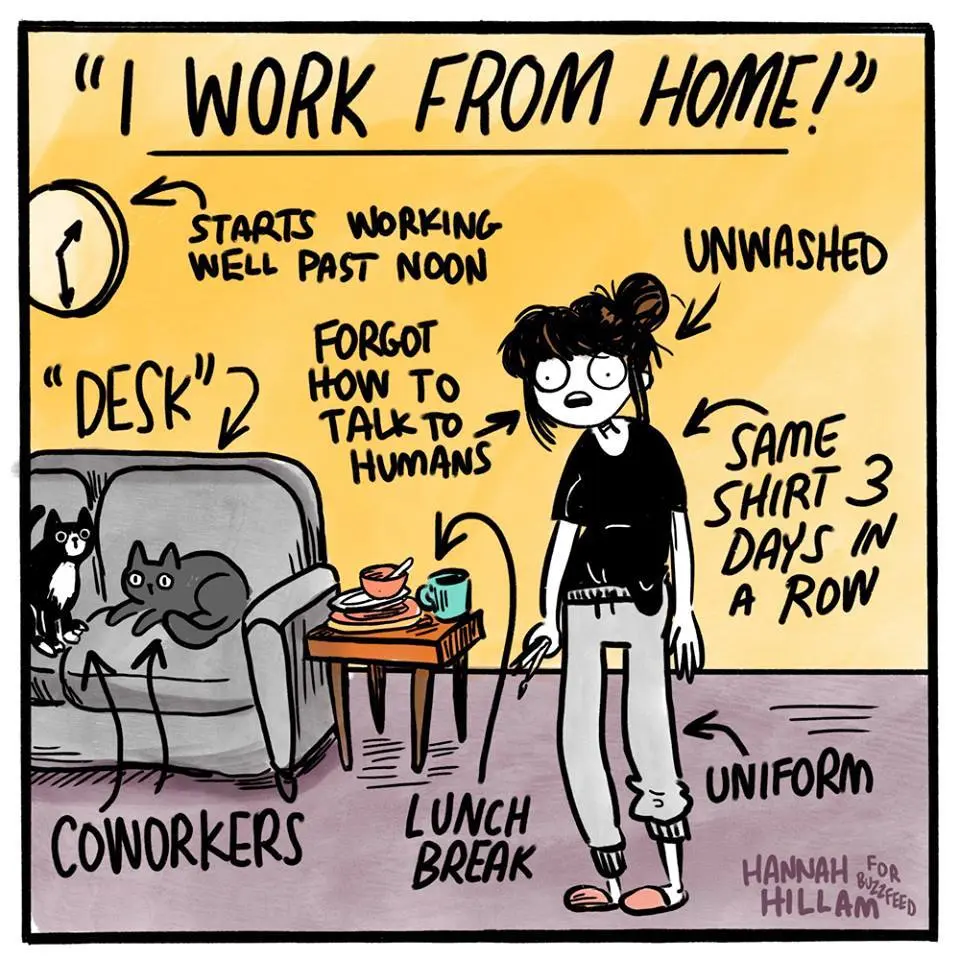 "I WORK FROM HOME!"
STARTS WORKING
WELL PAST NOON
UNWASHED
FORGOT
HOW TO
TALK TO
HUMANS
"DESK"
SAME
SHIRT 3
DAYS IN
A ROW
UNIFORM
COWORKERS
LUNCH
BREAK
HANNAH FOR
HILLAM BUZZFEED